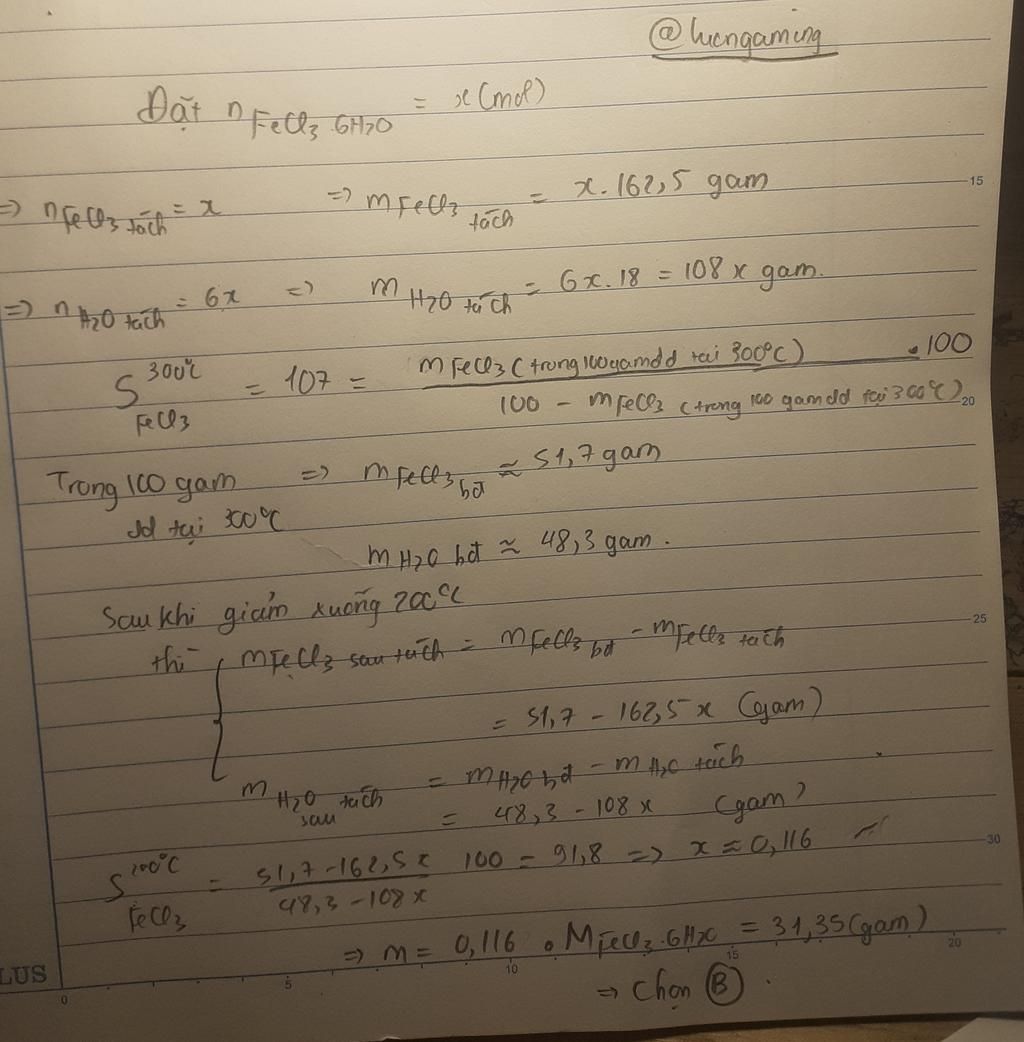 @hiengaming
Đặt n FeCl3.6H2O = x (mol)
=> n FeCl3 tách = x => m FeCl3 tách = x.162,5 gam
=> n H2O tách = 6x => m H2O tách = 6x.18 = 108x gam.
S 300°C FeCl3 = 107 = m FeCl3 (trong 100gam dd tại 300°C) / 100 - m FeCl3 (trong 100 gam dd tại 300°C) .100
Trong 100 gam => m FeCl3 bđ ≈ 51,7 gam
dd tại 300°C
m H2O bđ ≈ 48,3 gam.
Sau khi giảm xuống 200°C
thì { m FeCl3 sau tách = m FeCl3 bđ - m FeCl3 tách
= 51,7 - 162,5x (gam)
m H2O sau tách = m H2O bđ - m H2O tách
= 48,3 - 108x (gam)
S 200°C FeCl3 = 51,7-162,5x / 48,3-108x 100 = 91,8 => x ≈ 0,116
=> m = 0,116 . M FeCl3.6H2O = 31,35 (gam)
=> Chọn B.
LUS
0 5 10 15 20
15
20
25
30